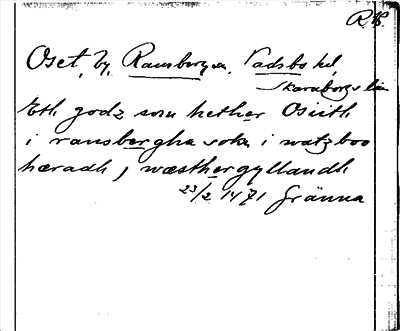 Oset, by, Ransbergs sn, Vadsbo hd,
Skaraborgs län
Eth godz som hether Osiith
i ransbergha sokn i watzboo
hæradh, wæsthergyllandh
23/2 1471 Gränna